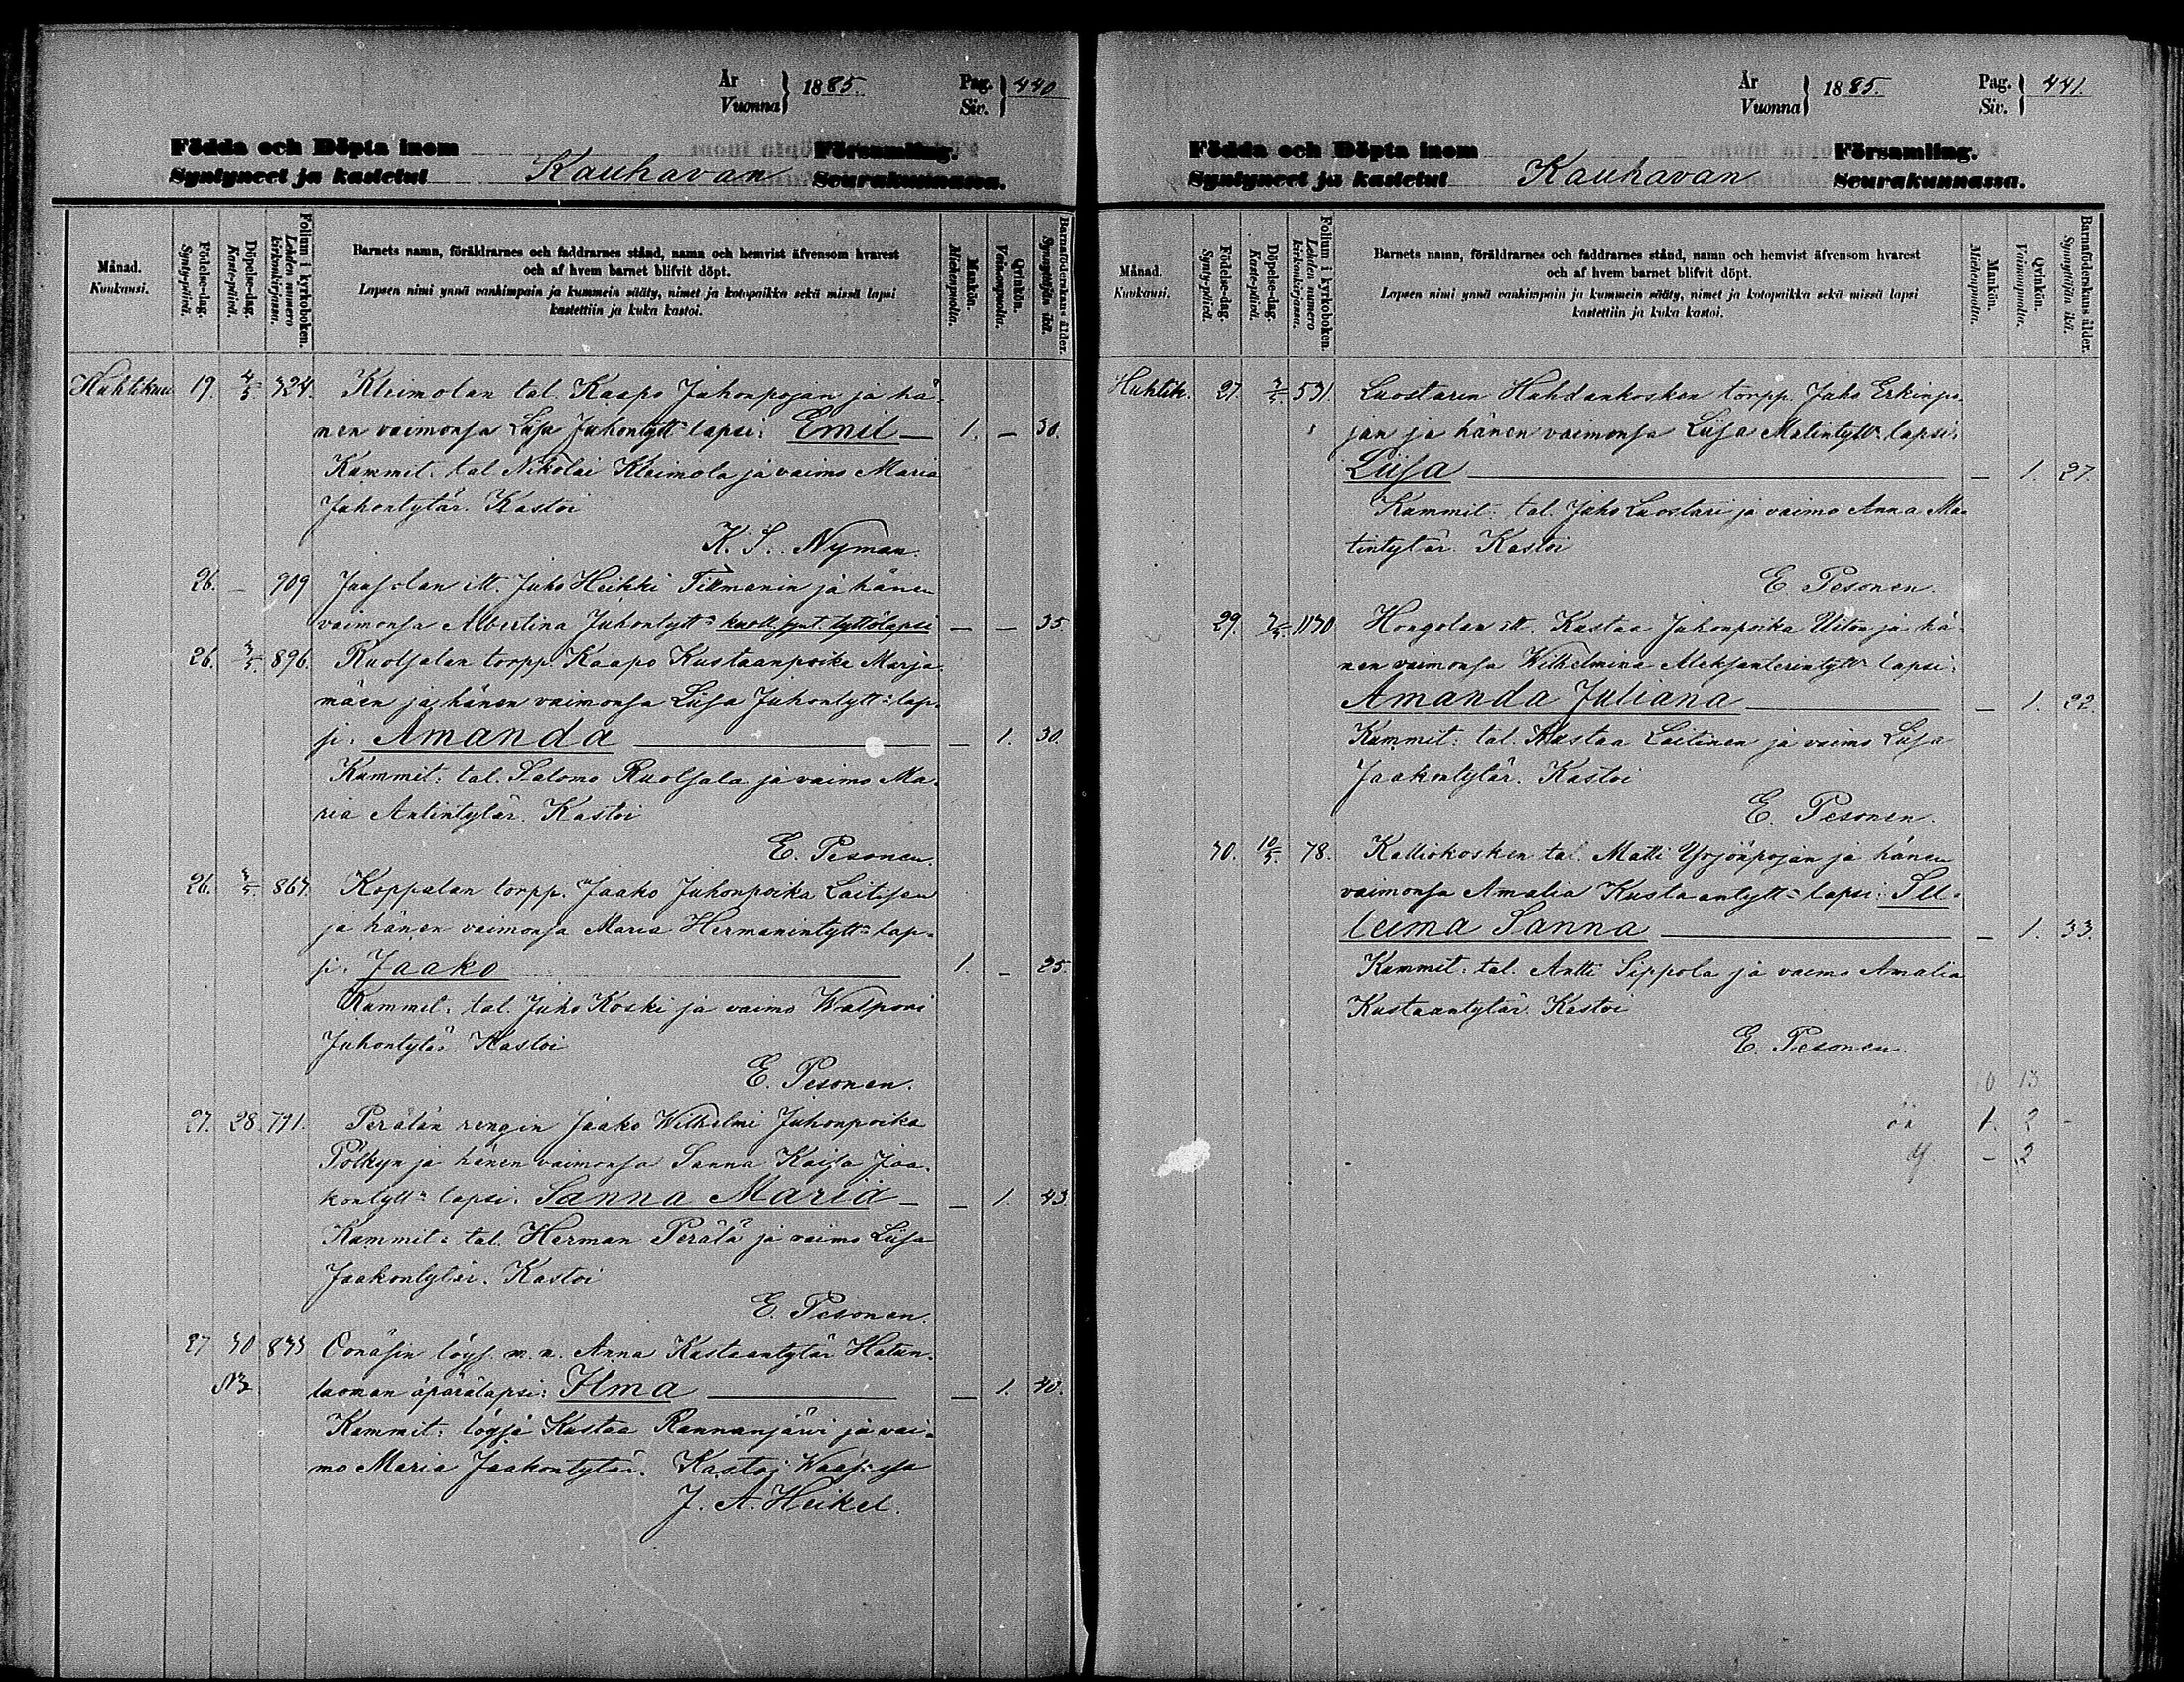 År
Vuonna } 1885.
Pag.
Siv. } 440
Födda och Döpta inom Församling.
Syntyneet ja kastetut Kauhavan Seurakunnassa.
Månad.
Kuukausi.
Födelse-dag.
Synty-päivä.
Döpelse-dag.
Kaste-päivä.
Folium i kyrkoboken.
Lehden numero kirkonkirjassa.
Barnets namn, föräldrarnes och faddrarnes stånd, namn och hemvist äfvensom hvarest
och af hvem barnet blifvit döpt.
Lapsen nimi ynnä vanhimpain ja kummein sääty, nimet ja kotopaikka sekä missä lapsi
kastettiin ja kuka kastoi.
Mankön.
Miehenpuolia.
Qvinkön.
Vaimonpuolia.
Barnaföderskans ålder.
Synnyttäjän ikä.
Huhtikuu 19. 4/5 324. Kleimolan tal. Kaapo Juhonpojan ja hä-
nen vaimonsa Liisa Juhontytt= lapsi: Emil — 1. — 30.
Kummit: tal. Nikolai Kleimola ja vaimo Maria
Juhontytär. Kastoi
K. S. Nyman.
26. — 909 Jaasolan itt. Juho Heikki Tikmanin ja hänen
vaimonsa Albertina Juhontytt= kuoll. synt. tyttölapsi — — 35.
26. 3/5 896. Ruotsalan torpp. Kaapo Kustaanpoika Marja-
mäen ja hänen vaimonsa Liisa Juhontytt= lap-
si: Amanda — — 1. 30.
Kummit: tal. Salomo Ruotsala ja vaimo Ma-
ria Antintytär. Kastoi
E. Pesonen.
26. 3/5 867. Koppalan torpp. Jaako Juhonpoika Laitisen
ja hänen vaimonsa Maria Hermanintytt= lap-
si: Jaako 1. — 25.
Kummit: tal. Juho Koski ja vaimo Walpori
Juhontytär. Kastoi
E. Pesonen.
27. 28. 791. Perälän rengin Jaako Wilhelmi Juhonpoika
Pölkyn ja hänen vaimonsa Sanna Kaisa Jaa-
kontytt= lapsi: Sanna Maria — — 1. 43.
Kummit: tal. Herman Perälä ja vaimo Liisa
Jaakontytär. Kastoi
E. Pesonen.
27 30 833 löys. n. n. Anna Kustaantytär
äpärälapsi: Ilma — — 1. 40.
Kummit: löysä Kustaa Rannanjärvi ja vai-
mo Maria Jaakontytär. Kastoi
J. A. Heikel.
År
Vuonna } 1885.
Pag.
Siv. } 441.
Födda och Döpta inom Församling.
Syntyneet ja kastetut Kauhavan Seurakunnassa.
Månad.
Kuukausi.
Födelse-dag.
Synty-päivä.
Döpelse-dag.
Kaste-päivä.
Folium i kyrkoboken.
Lehden numero kirkonkirjassa.
Barnets namn, föräldrarnes och faddrarnes stånd, namn och hemvist äfvensom hvarest
och af hvem barnet blifvit döpt.
Lapsen nimi ynnä vanhimpain ja kummein sääty, nimet ja kotopaikka sekä missä lapsi
kastettiin ja kuka kastoi.
Mankön.
Miehenpuolia.
Qvinkön.
Vaimonpuolia.
Barnaföderskans ålder.
Synnyttäjän ikä.
Huhtik. 27. 3/5. 531. Luostarin Huhdankosken torpp. Juho Erkinpo-
jan ja hänen vaimonsa Liisa Matintytt= lapsi:
Liisa — — 1. 27.
Kummit: tal. Juho Luostari ja vaimo Anna Ma-
tintytär. Kastoi
E. Pesonen.
29. 1170 Hongolan itt. Kustaa Juhonpoika Uiton ja hä-
nen vaimonsa Wilhelmina Aleksanterintytt= lapsi:
Amanda Juliana — — 1. 22.
Kummit: tal. Kustaa Laitinen ja vaimo Liisa
Jaakontytär. Kastoi
E. Pesonen.
30. 10/5. 78. Kalliokosken tal. Matti Yrjönpojan ja hänen
vaimonsa Amalia Kustaantytt= lapsi: Sel-
leima Sanna — — 1. 33.
Kummit: tal. Antti Sippola ja vaimo Amalia
Kustaantytär. Kastoi
E. Pesonen.
10 13
öä 1. 2 -
- 2